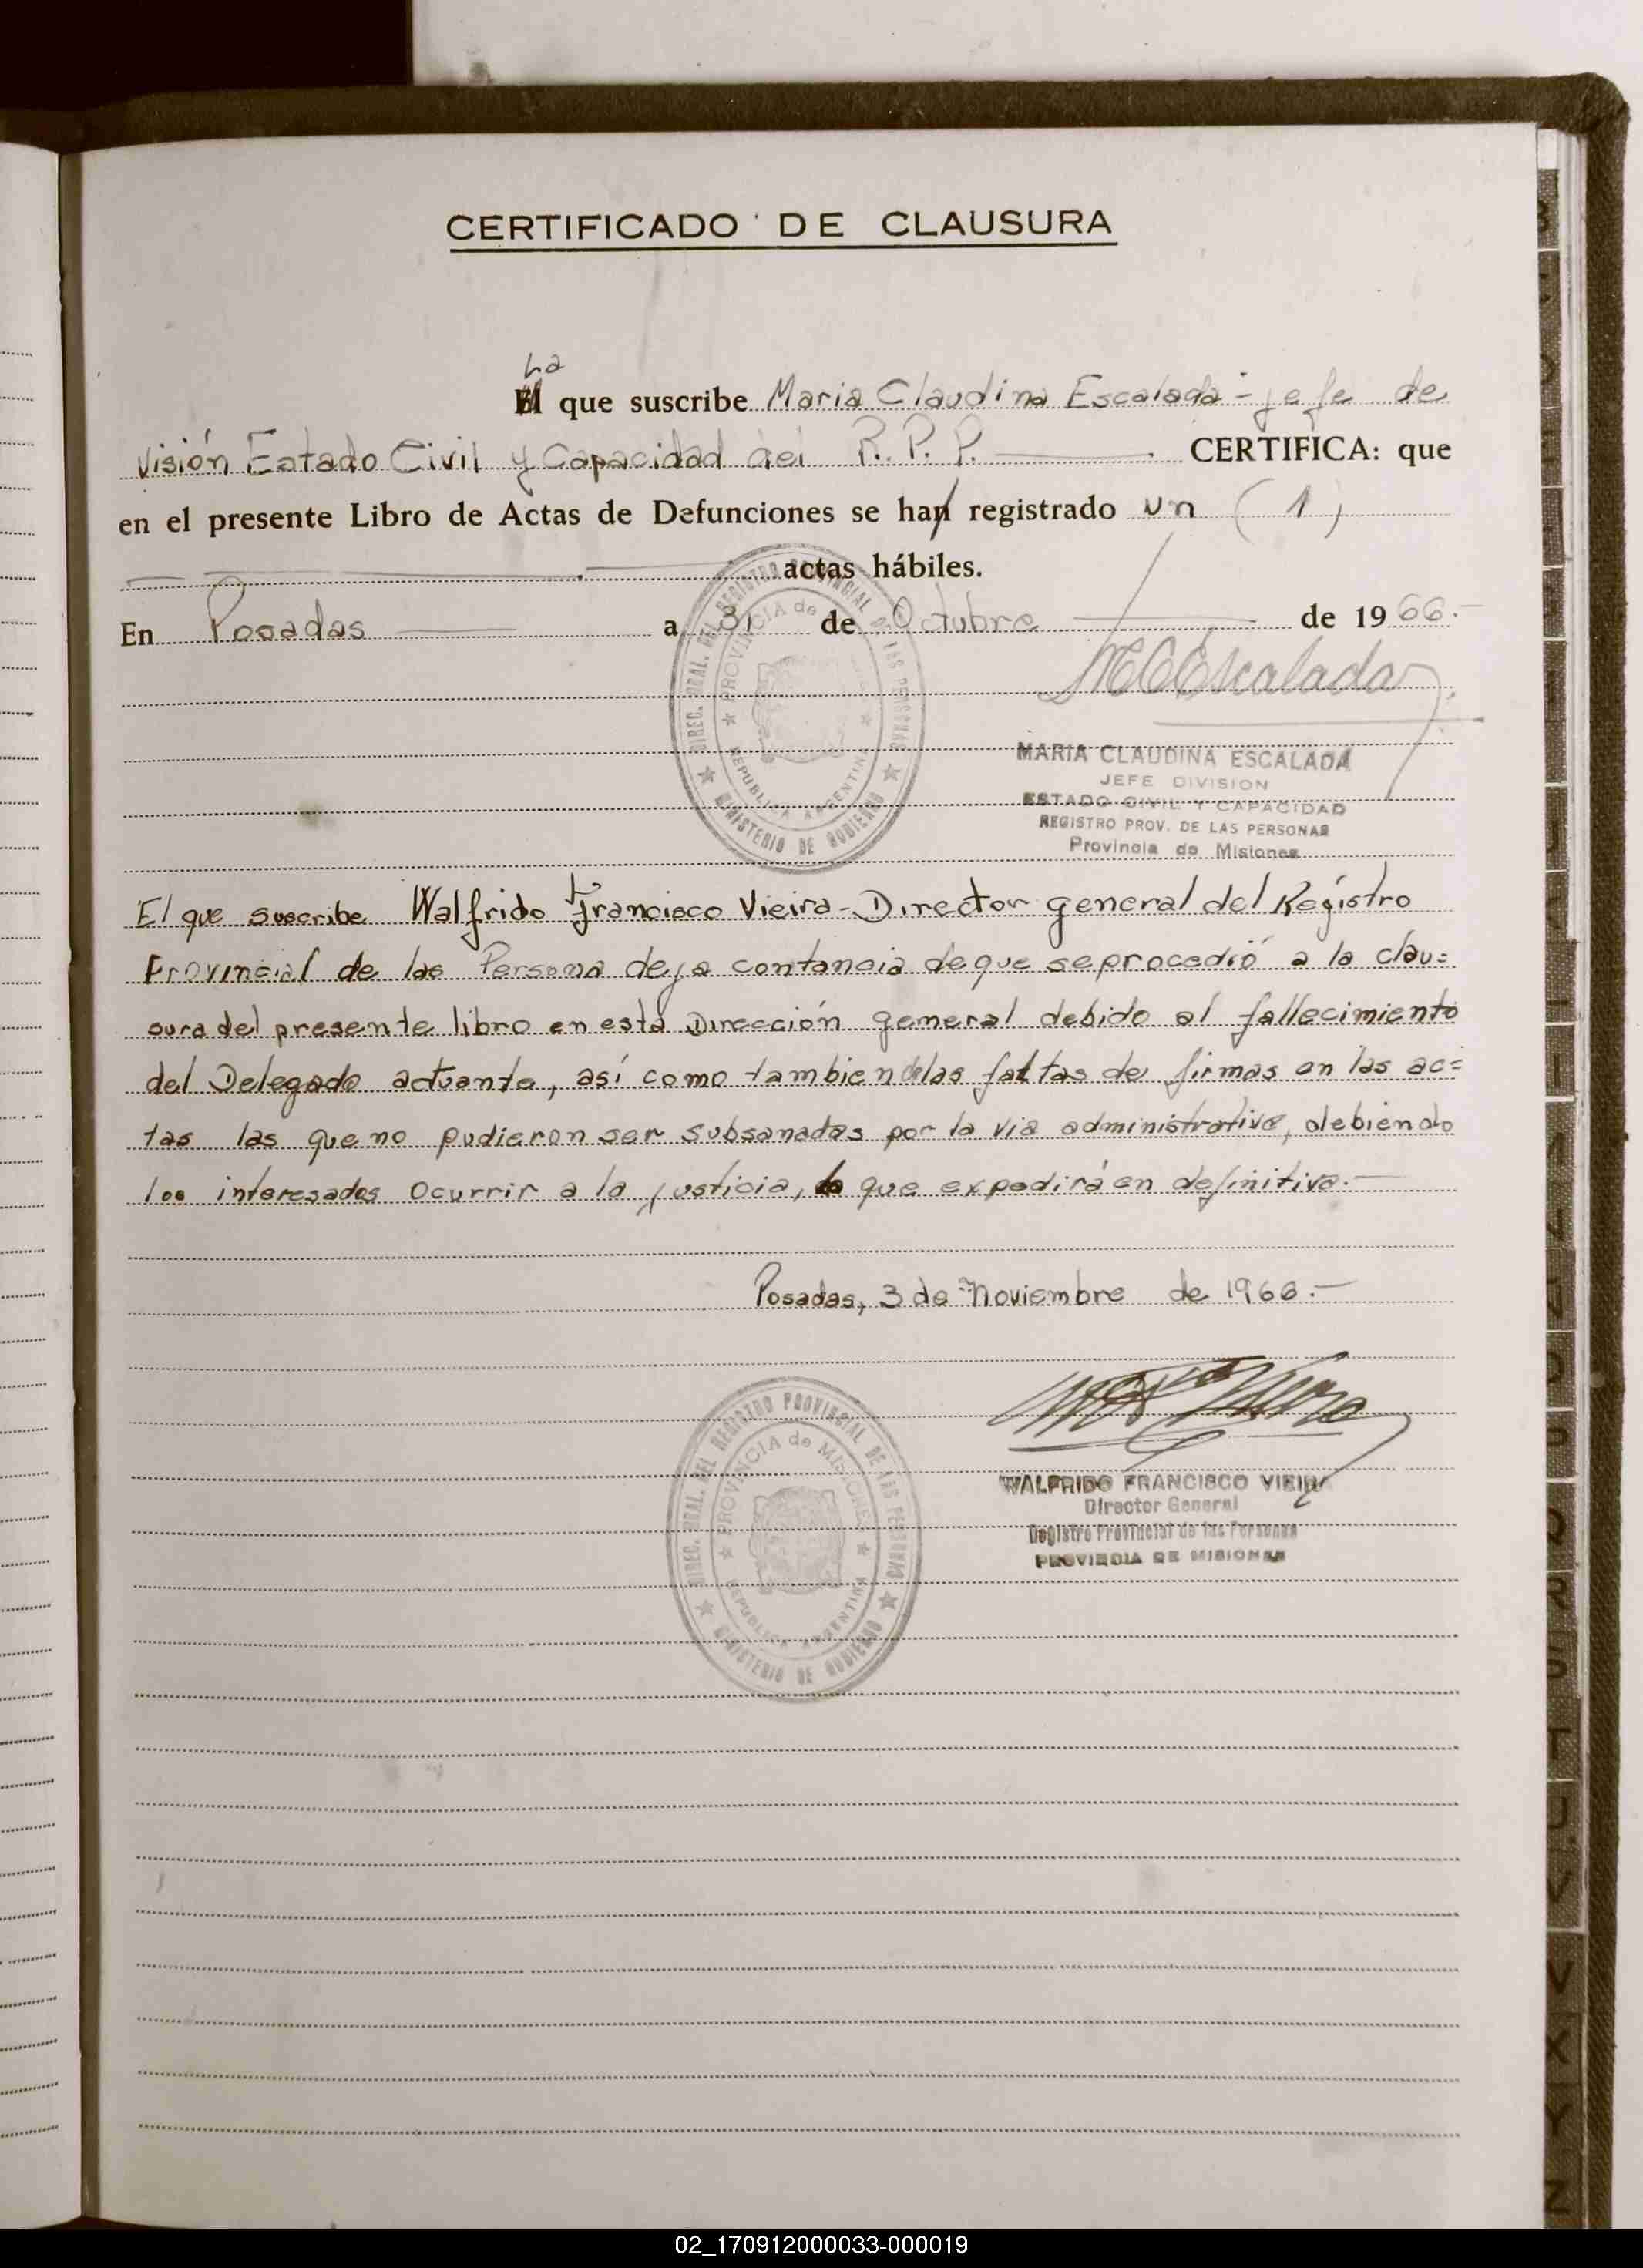 CERTIFICADO DE CLAUSURA
La
El que suscribe Maria Claudina Escalada - jefe de
visión Estado Civil y Capacidad del R. P. P. CERTIFICA: que
en el presente Libro de Actas de Defunciones se han registrado un ( 1 )
actas hábiles.
En Posadas a 31 de Octubre de 1966.-
MCEscalada
MARIA CLAUDINA ESCALADA
JEFE DIVISION
ESTADO CIVIL Y CAPACIDAD
REGISTRO PROV. DE LAS PERSONAS
Provincia de Misiones
DIREC. GRAL. DEL REGISTRO PROVINCIAL DE LAS PERSONAS
PROVINCIA de
REPUBLICA ARGENTINA
MINISTERIO DE GOBIERNO
El que suscribe Walfrido Francisco Vieira - Director general del Registro
Provincial de las Persona deja contancia de que se procedió a la clau=
sura del presente libro en está Dirección general debido al fallecimiento
del Delegado actuante, así como tambien de las faltas de firmas en las ac=
tas las que no pudieron ser subsanadas por la via administrativa, debiendo
los interesados ocurrir a la justicia, la que expedirá en definitiva.-
Posadas, 3 de Noviembre de 1966.-
WALFRIDO FRANCISCO VIEIRA
Director General
Registro Provincial de las Personas
PROVINCIA DE MISIONES
DIREC. GRAL. DEL REGISTRO PROVINCIAL DE LAS PERSONAS
PROVINCIA de MISIONES
REPUBLICA ARGENTINA
MINISTERIO DE GOBIERNO
02_170912000033-000019